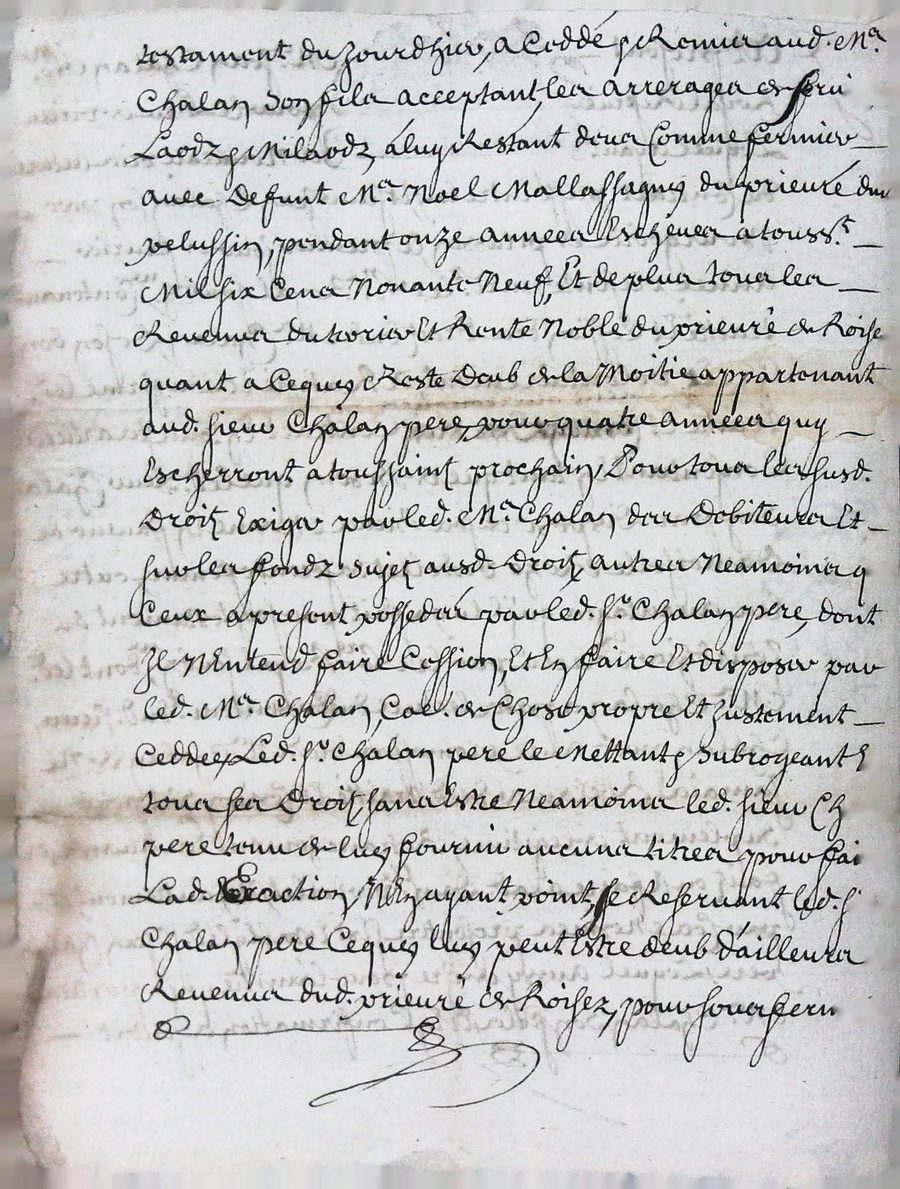 testament du Jourdhier, a Ceddé & Remis aud. Me.
Chalan son fils acceptant, les arrerages de servi
Laodz & Milaodz, á luy Réstant deus Comme fermier
avec Defunt Me. Noel Mallassagny du prieuré du
pelussin, pendant onze annees Escheues a touss.t
Mil six Cens Nonante Neuf, Et de plus tous les
Revenus du terrier Et Rente Noble du prieuré de Roise
quant a Cequy Reste Deub de la Moitie appartenant
aud. sieur Chalan pere, pour quatre annees quy
Escherront a toussaint prochain, Pour tous les susd.
Droit Exiger par led. Me. Chalan des Debiteurs Et
sur les fondz sujet ausd. Droit, autres Neamoins q
Ceux a present possedés par led. Sr. Chalan pere, dont
Il N'Entend faire Cession, Et En faire Et disposer par
led. Me. Chalan, Coe. de Chose propre Et Justement
Ceddee, Led. Sr. Chalan pere le Mettant & Subrogeant E
tous ses Droit, sans Estre Neamoins led. sieur Ch
pere tenu de luy fournir aucuns titres pour fai
Lad. Exaction, N'En ayant point, se Reservant led. S
Chalan pere Cequy luy peut Estre deub d'ailleurs
Revenus dud. prieuré de Roisez, pour sous ferm